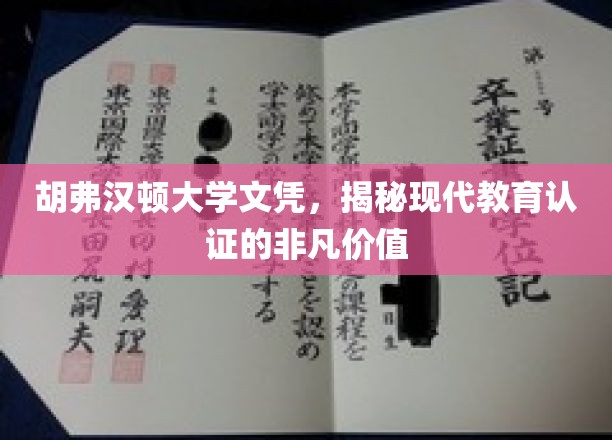 胡弗汉顿大学文凭，揭秘现代教育认
证的非凡价值
第 号
卒業証 学位記
本学商学部 定の課程を
修めて本学 ことを認め
学士(商学)の学 する
平成
東京国際大学商 長田村愛理
東京国際大学長田尻嗣夫
日生